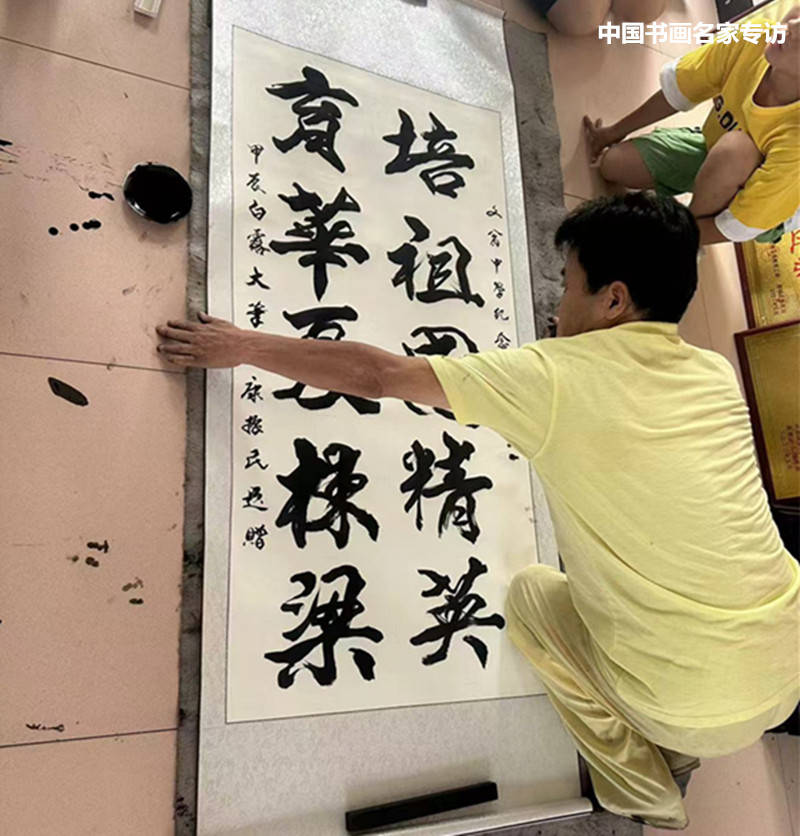 中国书画名家专访
文翁中學纪念
培祖國精英
育華夏棟梁
甲辰白露大筆
康振民題贈